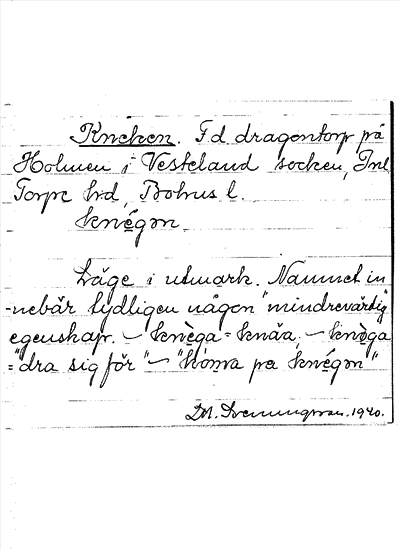 Kneken. F d dragontorp på
Holmen i Veseland socken, Inl
Torpe hrd, Bohus l.
knégən.
Läge i utmark. Namnet in
-nebär tydligen någon "mindrevärdig"
egenskap. ~ knèga = knäa, ~ knèga
= "dra sig för" ~ "kòma pa knégən"
D. M. Svenningsson. 1940.